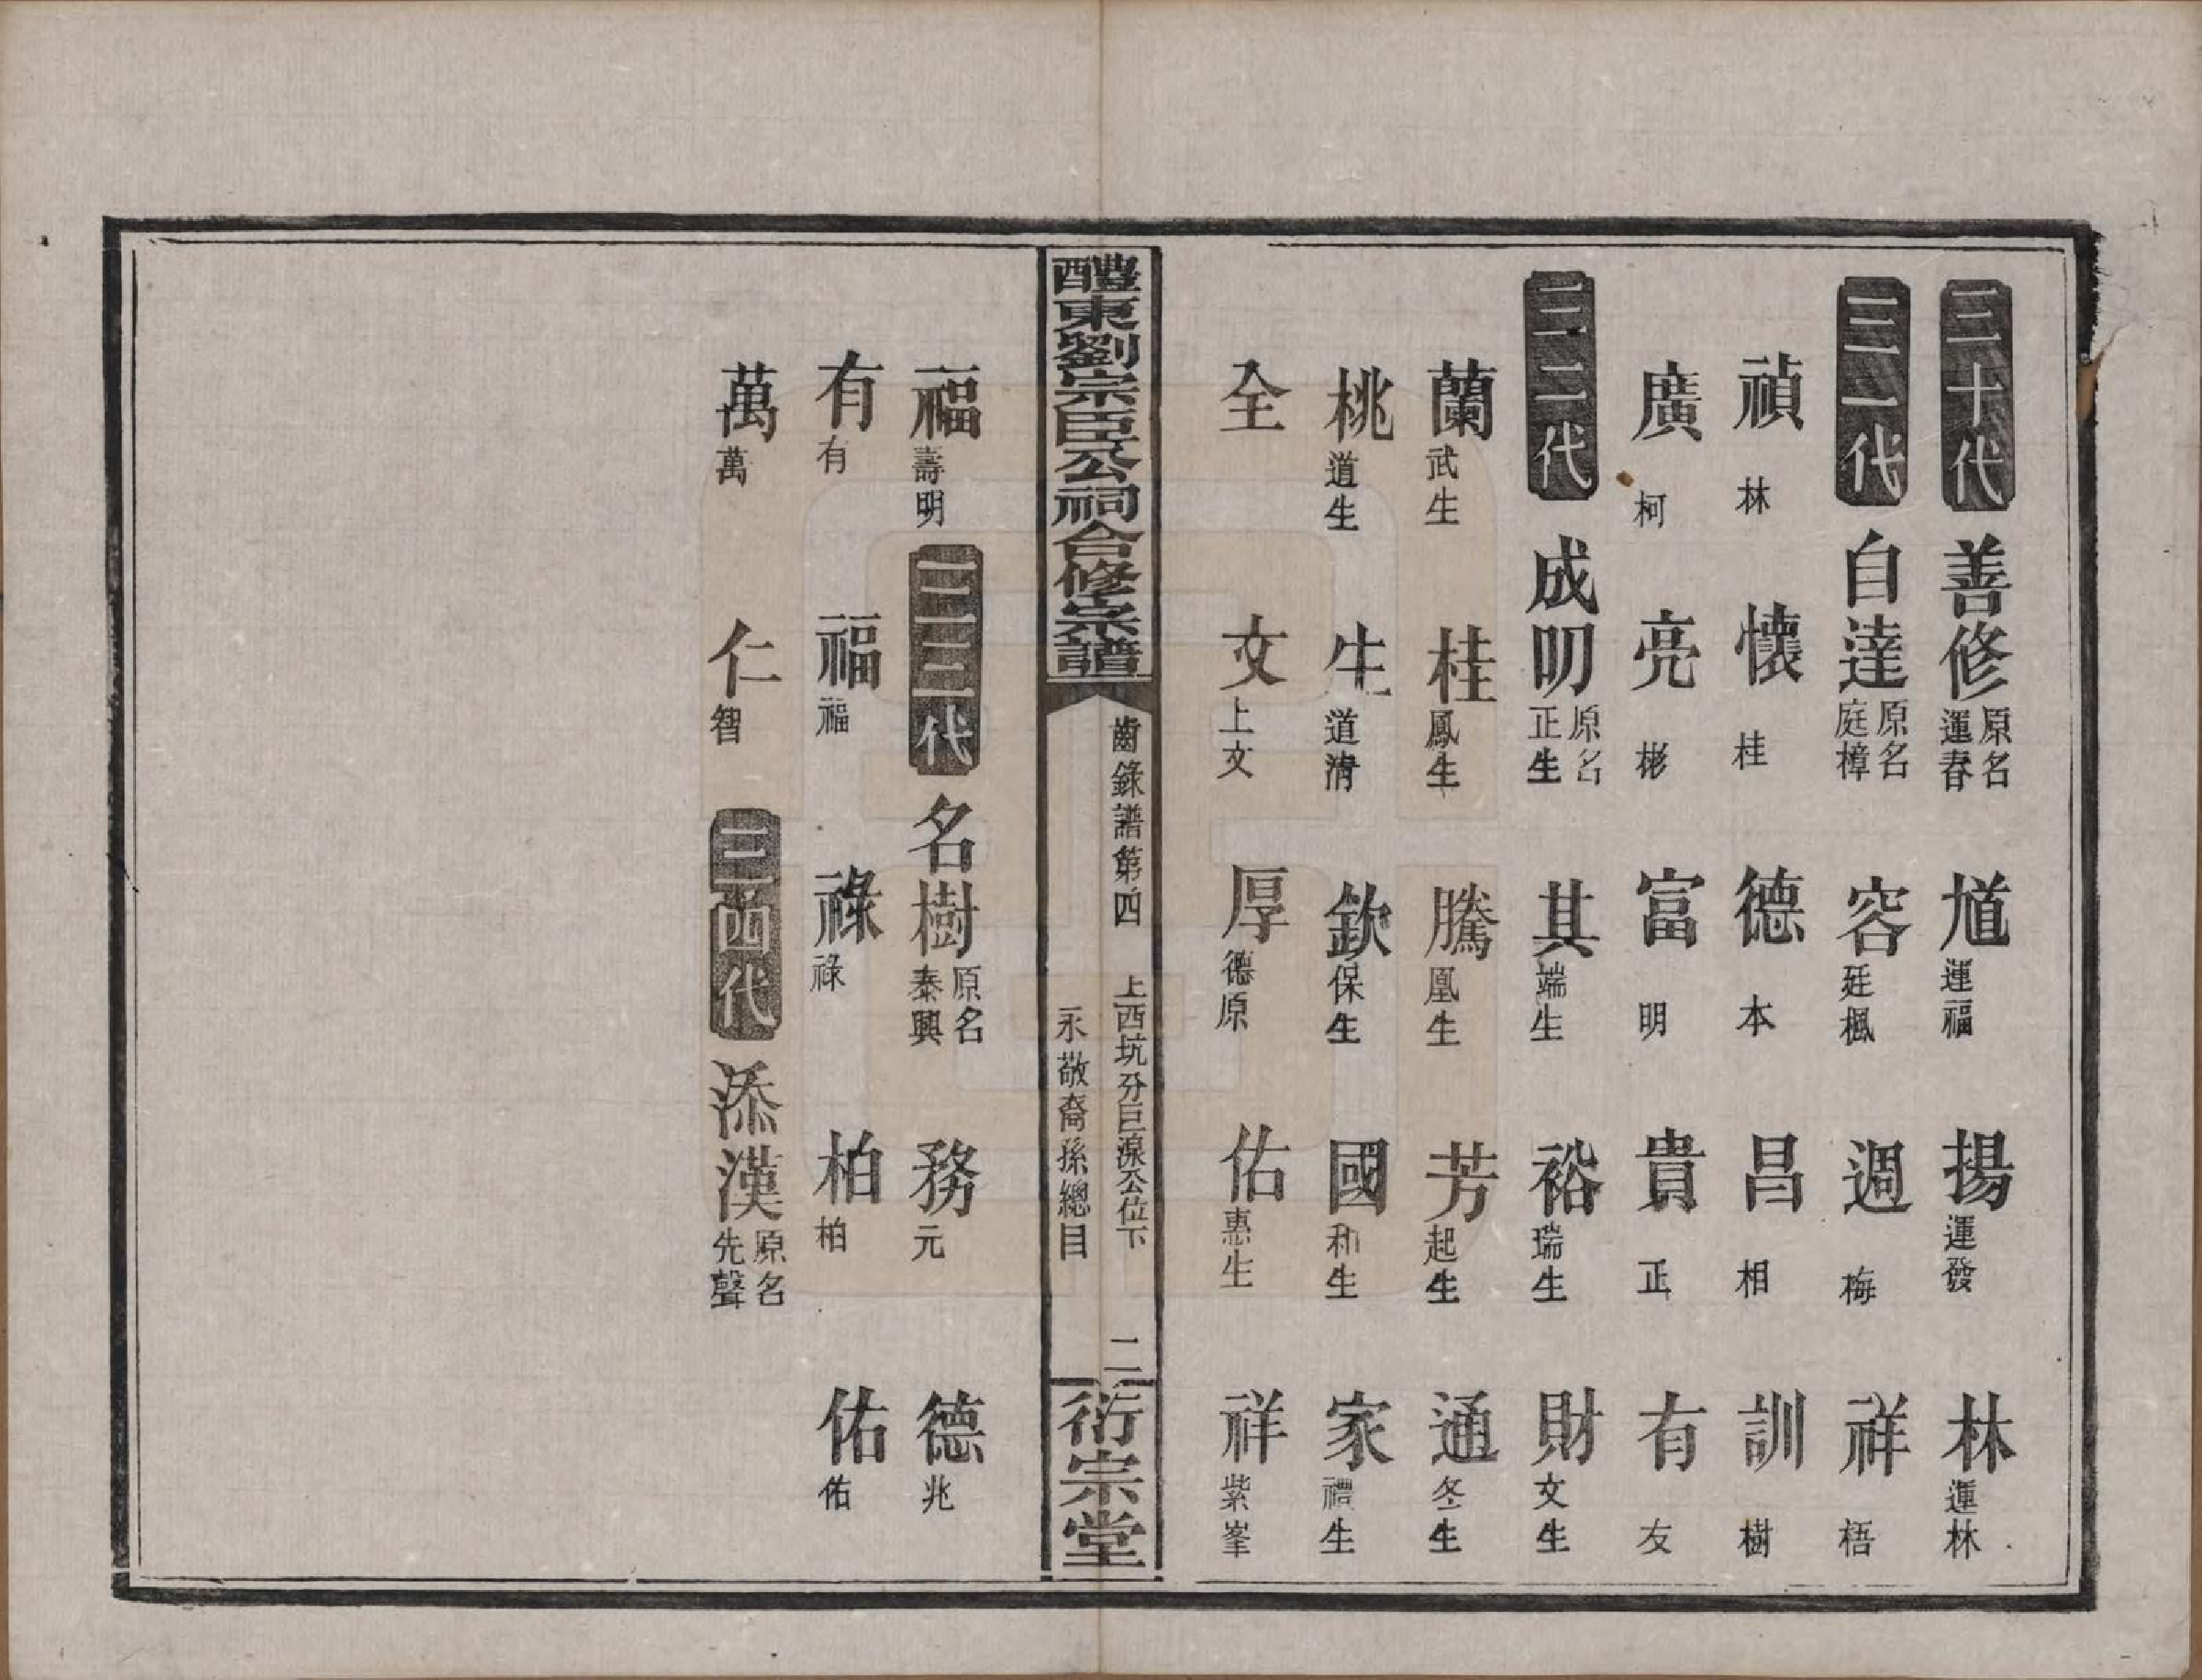 三十代 善修 原名運春 馗 運福 揚 運發 林 運林
三一代 自達 原名庭樟 容 廷楓 週 梅 祥 梧
禎 林 懷 桂 德 本 昌 相 訓 樹
廣 柯 亮 彬 富 明 貴 正 有 友
三二代 成叨 原名正生 其 端生 裕 瑞生 財 文生
蘭 武生 桂 鳳生 騰 凰生 芳 起生 通 冬生
桃 道生 生 道清 欽 保生 國 和生 家 禮生
全 文 上文 厚 德原 佑 惠生 祥 紫峯
醴東劉宗臣公祠合修宗譜
齒錄譜第四 上西坑分巨源公位下
永敬裔孫總目
二
衍宗堂
福 壽明 三三代 名樹 原名泰興 務 元 德 兆
有 有 福 福 祿 祿 柏 柏 佑 佑
萬 萬 仁 智 三四代 添漢 原名先聲